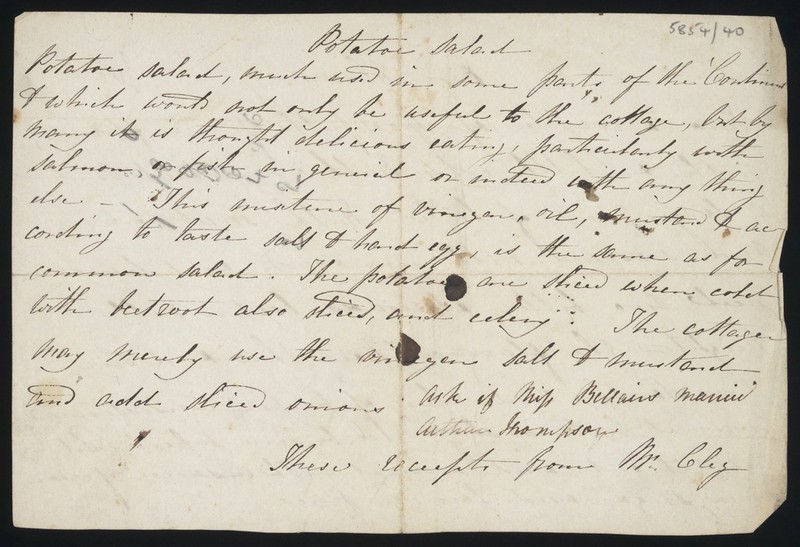 5854/40
Potatoe salad
Potatoe salad, much used in some parts of the Continent
& which would not only be useful to the cottage, but by
many it is thought delicious eating, particularly with
salmon or fish in general or indeed with any thing
else - This mixture of vinegar, oil, mustard & ac
cording to taste salt & hard egg, is the same as for
common salad. The potatoes are sliced when cold
with beetroot also sliced, and celery. The cottager
may merely use the vinegar salt & mustard
and add sliced onions. Ask if Miss Bellairs married
Arthur Thompson
These receipts from Mr. Cleg